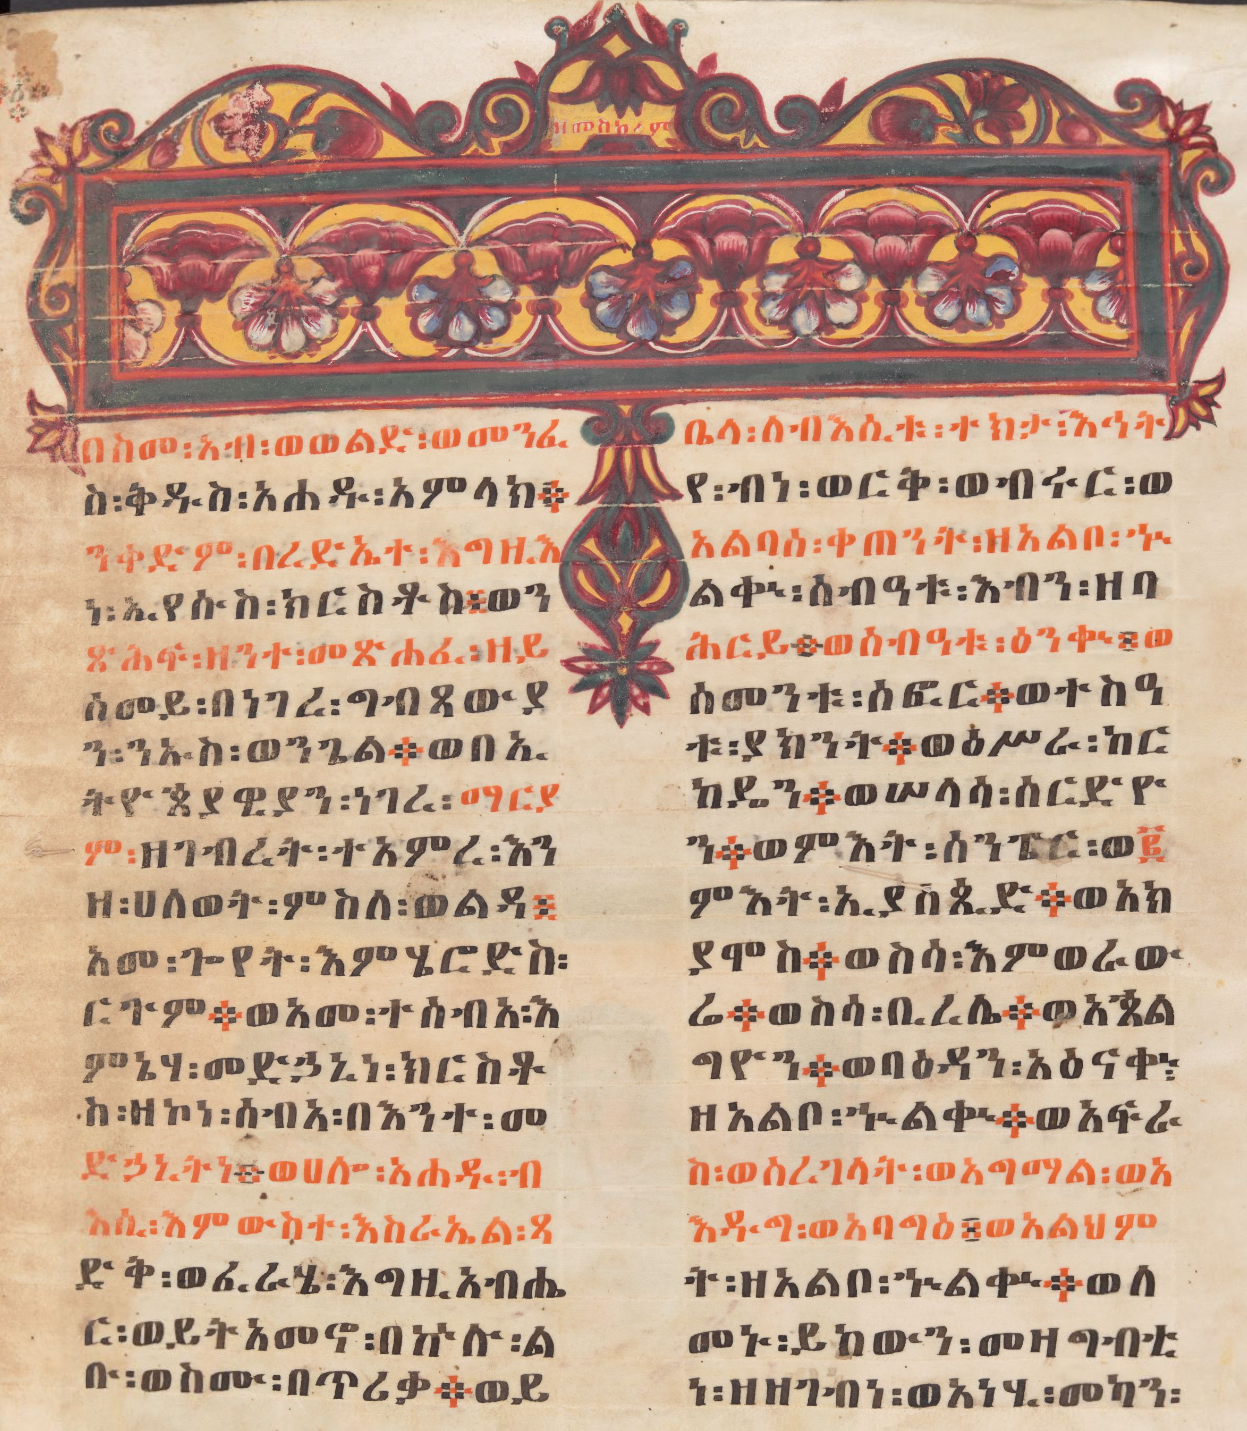 ዘመስከረም
በስመ፡አብ፡ወወልድ፡ወመንፈ
ስ፡ቅዱስ፡አሐዱ፡አምላክ።
ንቀድም፡በረድኤተ፡እግዚእ
ነ፡ኢየሱስ፡ክርስቶስ፡ወን
ጽሕፍ፡ዘንተ፡መጽሐፈ፡ዘይ
ሰመይ፡በነገረ፡ግብጻውያ
ን፡ንኡስ፡ወንጌል።ወበኢ
ትዮጵያዊያን፡ነገረ፡ማርያ
ም፡ዘገብረት፡ተአምረ፡እን
ዘ፡ሀለወት፡ምስለ፡ወልዳ፤
አመ፡ጐየት፡እምሄሮድስ፡
ርጉም።ወአመ፡ተሰብአ፡እ
ምኔሃ፡መድኃኒነ፡ክርስቶ
ስ፡ዘኮነ፡ሰብአ፡በእንተ፡መ
ድኃኒትነ።ወሀሎ፡አሐዱ፡ብ
እሲ፡እምውስተ፡እስራኤል፡ጻ
ድቅ፡ወፈራሄ፡እግዚአብሔ
ር፡ወይትአመኖ፡በኵሉ፡ል
ቡ፡ወስሙ፡በጥሪቃ።ወይ
ቤላ፡ለብእሲቱ፡ተክታ፡እኅት
የ፡ብነ፡ወርቅ፡ወብሩር፡ወ
አልባሰ፡ቀጠንት፡ዘአልቦ፡ኍ
ልቀ፡ሰብዓቱ፡እብን፡ዘባ
ሕርይ።ወሰብዓቱ፡ዕንቀ፡፤ወ
ሰመንቱ፡ሰፎር።ወተስዓ
ቱ፡ያክንት።ወዕሥራ፡ከር
ከዴን።ወሠላሳ፡ሰርድዮ
ን።ወምእት፡ሰንፔር፡ወ፪
ምእት፡ኢያሰጲድ።ወአክ
ያሞስ።ወስሳ፡እምወራው
ሬ።ወስሳ፡ቢረሌ።ወአጵል
ግዮን።ወባዕዳን፡አዕናቀ፡
ዘአልቦ፡ኍልቀ።ወአፍራ
ስ፡ወሰረገላት፡ወአግማል፡ወአ
እዱግ፡ወአባግዕ፤ወአልህም
ት፡ዘአልቦ፡ኍልቀ።ወለ
መኑ፡ይከውን፡መዛግብቲ
ነ፡ዘዘገብነ፡ወአነሂ፡መካን፡